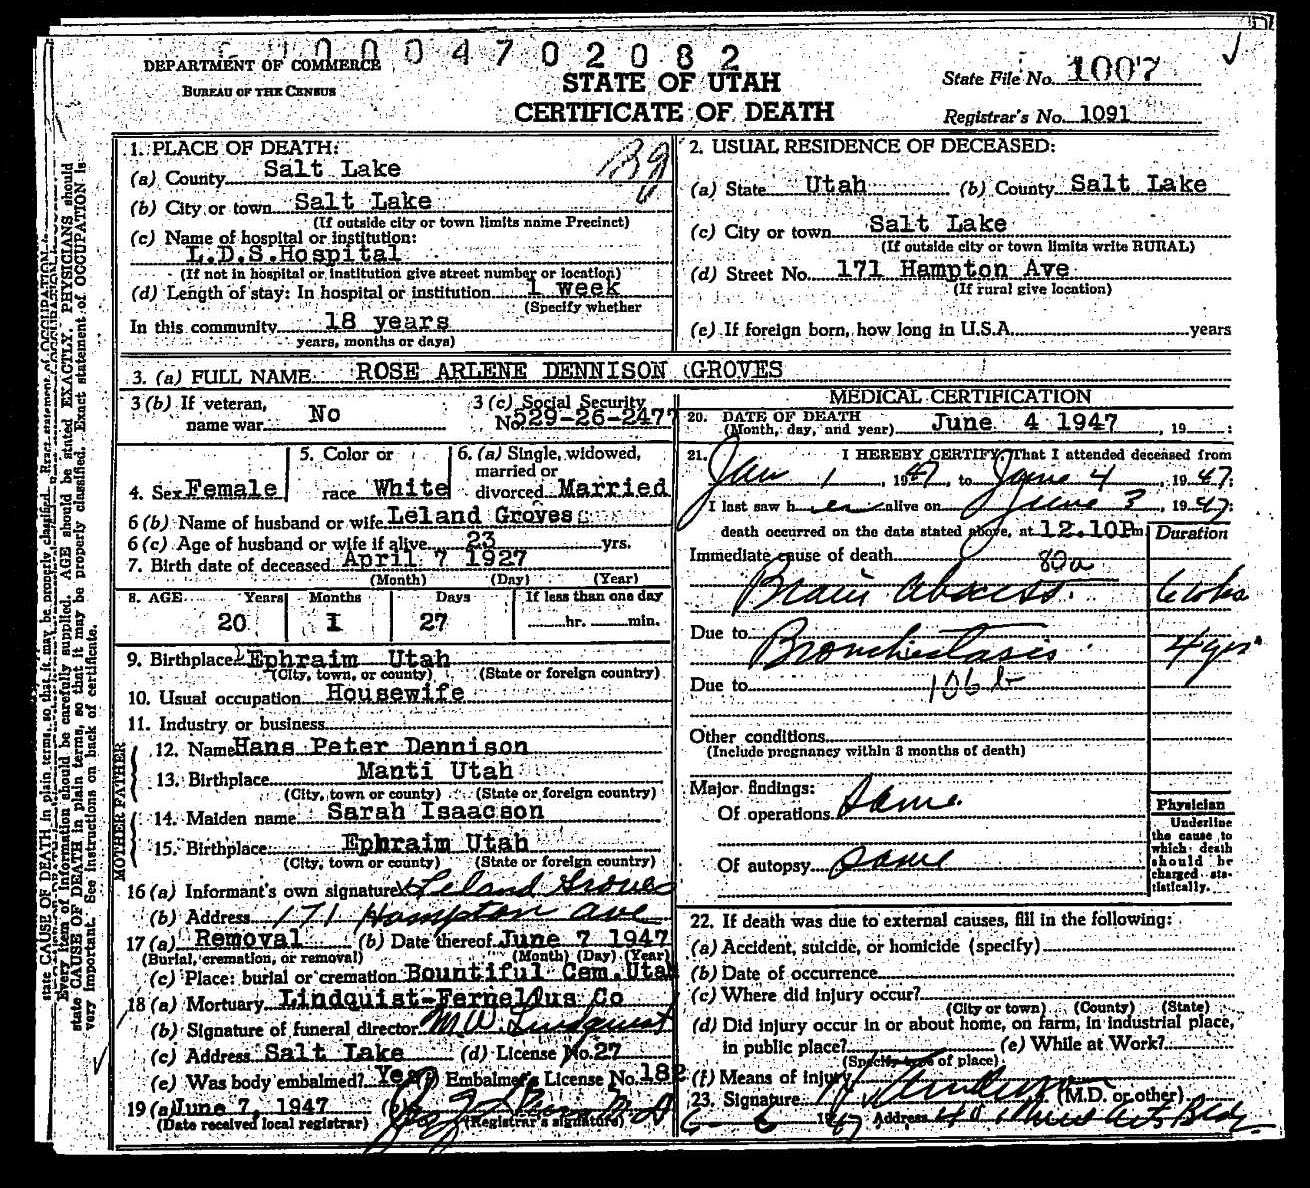 0004702082
DEPARTMENT OF COMMERCE
BUREAU OF THE CENSUS
STATE OF UTAH
CERTIFICATE OF DEATH
State File No. 1007
Registrar's No. 1091
1. PLACE OF DEATH:
(a) County Salt Lake
(b) City or town Salt Lake
(If outside city or town limits name Precinct)
(c) Name of hospital or institution:
L.D.S.Hospital
(If not in hospital or institution give street number or location)
(d) Length of stay: In hospital or institution 1 week
(Specify whether
In this community 18 years
years, months or days)
2. USUAL RESIDENCE OF DECEASED:
(a) State Utah (b) County Salt Lake
(c) City or town Salt Lake
(If outside city or town limits write RURAL)
(d) Street No. 171 Hampton Ave
(If rural give location)
(e) If foreign born, how long in U.S.A. years
3. (a) FULL NAME ROSE ARLENE DENNISON GROVES
3 (b) If veteran, name war No
3 (c) Social Security No. 529-26-2477
4. Sex Female
5. Color or race White
6. (a) Single, widowed, married or divorced Married
6 (b) Name of husband or wife Leland Groves
6 (c) Age of husband or wife if alive 23 yrs.
7. Birth date of deceased April 7 1927
(Month) (Day) (Year)
8. AGE Years Months Days If less than one day
20 1 27 hr. min.
9. Birthplace Ephraim Utah
(City, town, or county) (State or foreign country)
10. Usual occupation Housewife
11. Industry or business
FATHER
12. Name Hans Peter Dennison
13. Birthplace Manti Utah
(City, town or county) (State or foreign country)
MOTHER
14. Maiden name Sarah Isaacson
15. Birthplace Ephraim Utah
(City, town or county) (State or foreign country)
16 (a) Informant's own signature Leland Groves
(b) Address 171 Hampton Ave
17 (a) Removal (b) Date thereof June 7 1947
(Burial, cremation, or removal) (Month) (Day) (Year)
(c) Place: burial or cremation Bountiful Cem. Utah
18 (a) Mortuary Lindquist-Fernelius Co
(b) Signature of funeral director M W Lindquist
(c) Address Salt Lake (d) License No. 27
(e) Was body embalmed? Yes Embalmer's License No. 182
19 (a) June 7, 1947 (b)
(Date received local registrar) (Registrar's signature)
MEDICAL CERTIFICATION
20. DATE OF DEATH
(Month, day, and year) June 4 1947, 19
21. I HEREBY CERTIFY, That I attended deceased from
Jan 1, 1947, to June 4, 1947;
I last saw her alive on June 3, 1947;
death occurred on the date stated above, at 12.10Pm
Duration
Immediate cause of death 80a
Brain Abscess. 6 wks
Due to Bronchiectasis 4 yrs
Due to 106 b
Other conditions
(Include pregnancy within 3 months of death)
Major findings:
Of operations Same
Of autopsy Same
Physician
Underline the cause to which death should be charged statistically.
22. If death was due to external causes, fill in the following:
(a) Accident, suicide, or homicide (specify)
(b) Date of occurrence
(c) Where did injury occur?
(City or town) (County) (State)
(d) Did injury occur in or about home, on farm, in industrial place,
in public place? (e) While at Work?
(Specify type of place)
(f) Means of injury
23. Signature (M.D. or other)
6-6 1947 Address
state CAUSE OF DEATH in plain terms, so that it may be properly classified. Exact statement of OCCUPATION
Every item of information should be carefully supplied. AGE should be stated EXACTLY. PHYSICIANS should
state CAUSE OF DEATH in plain terms, so that it may be properly classified. Exact statement of OCCUPATION is
very important. See instructions on back of certificate.